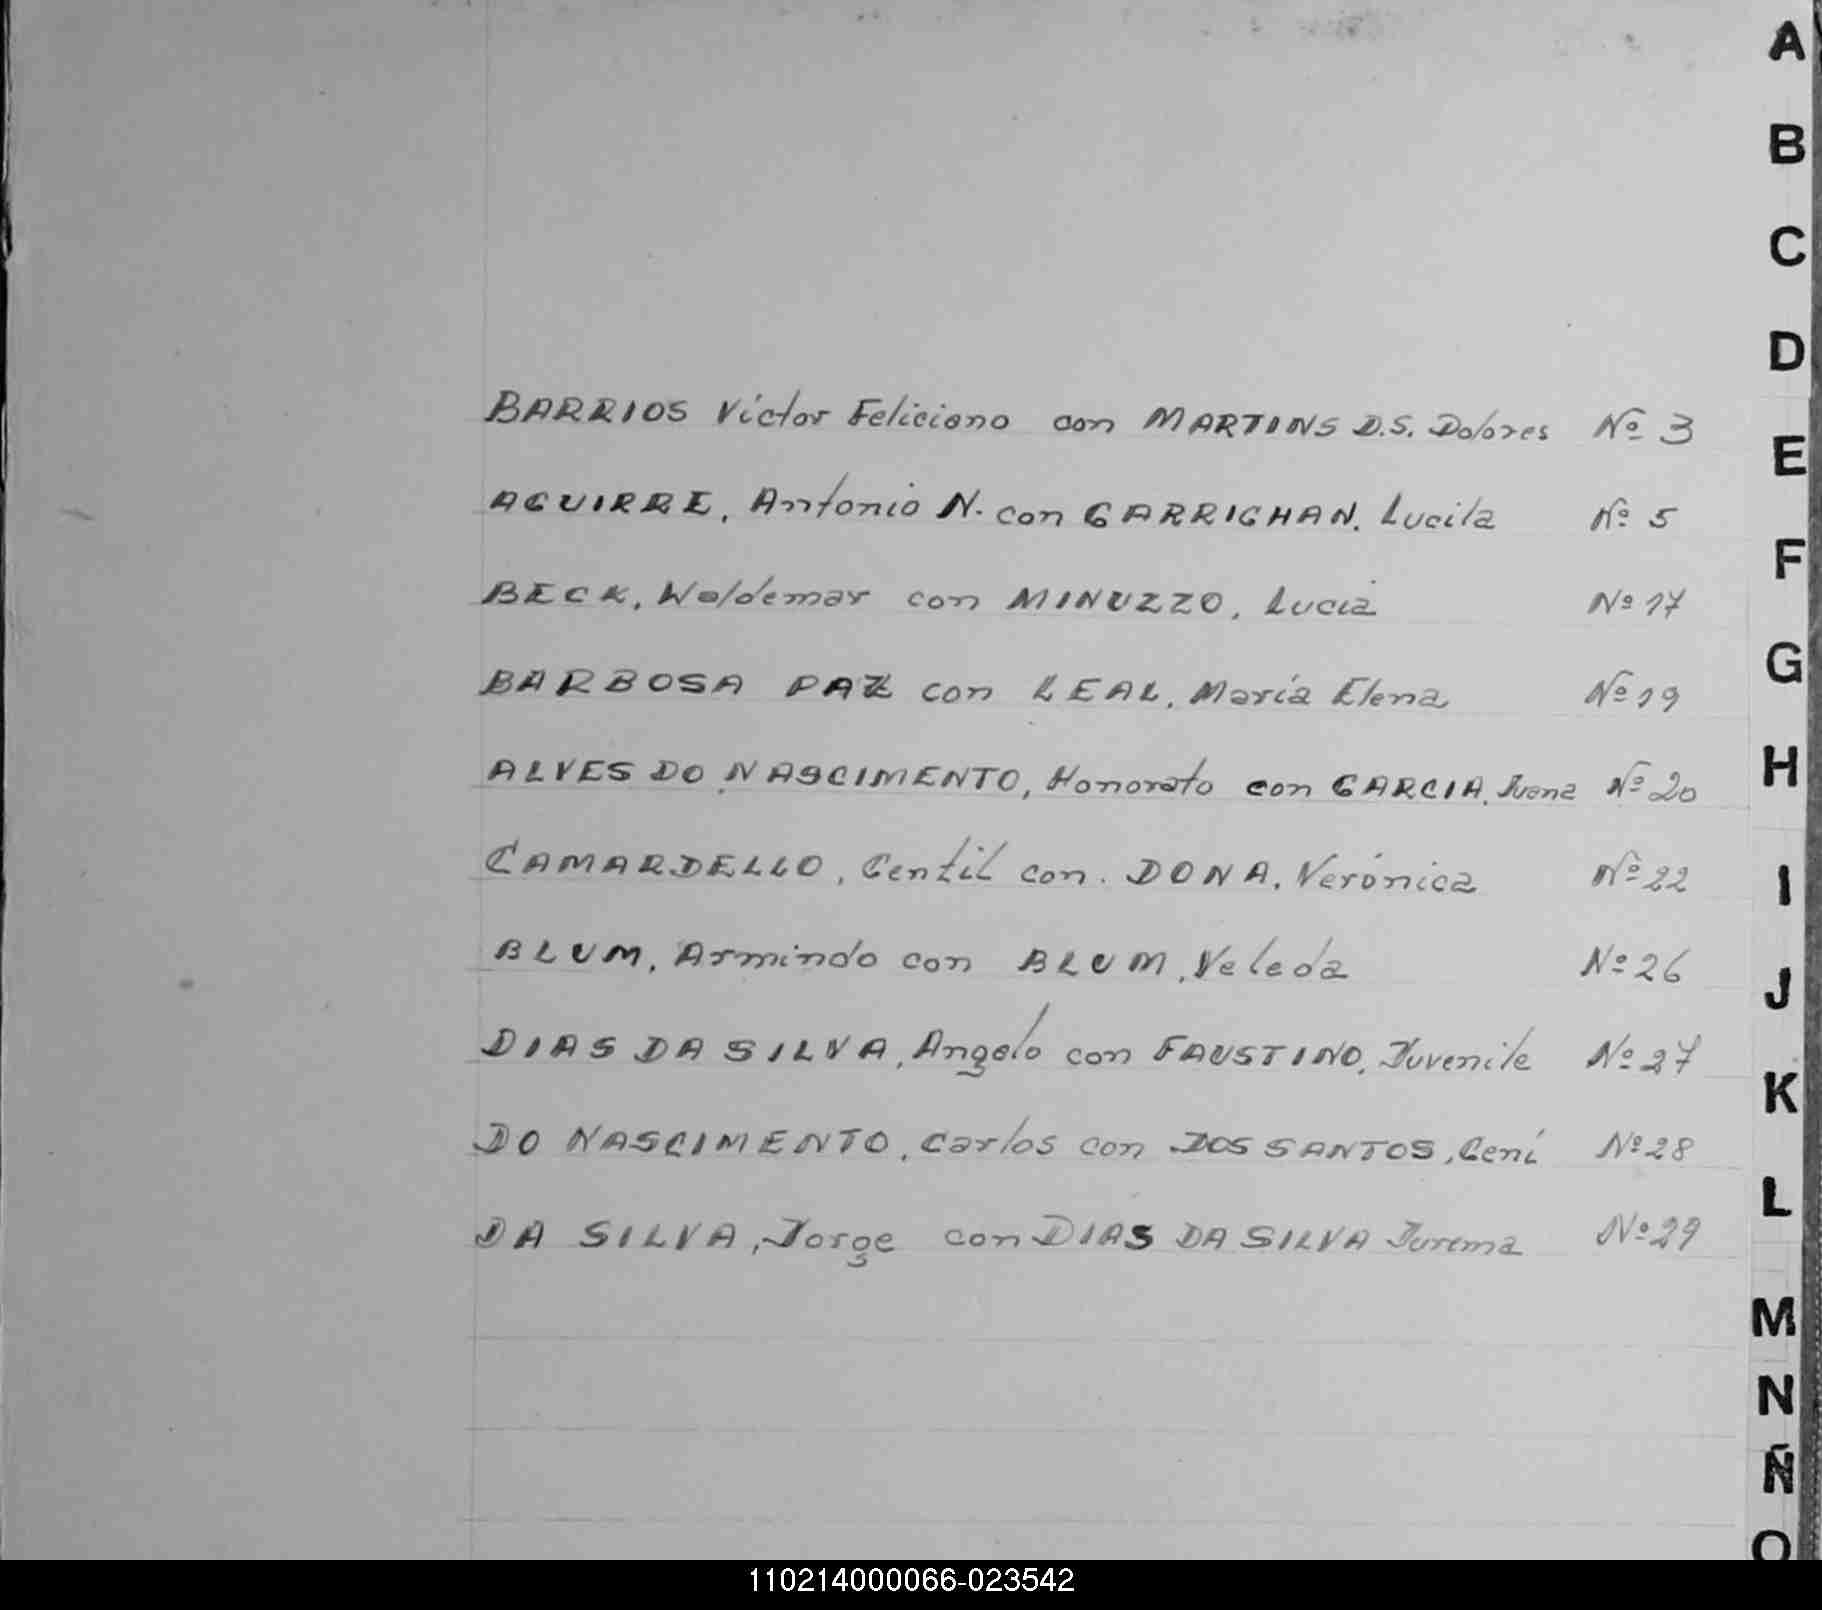 BARRIOS Víctor Feliciano con MARTINS D.S. Dolores Nº 3
AGUIRRE, Antonio N. con GARRIGHAN, Lucila Nº 5
BECK, Waldemar con MINUZZO, Lucia Nº 17
BARBOSA PAZ con LEAL, María Elena Nº 19
ALVES DO NASCIMENTO, Honorato con GARCIA, Juana Nº 20
CAMARDELLO, Gentil con. DONA, Verónica Nº 22
BLUM, Armindo con BLUM, Veleda Nº 26
DIAS DA SILVA, Angelo con FAUSTINO, Juvenile Nº 27
DO NASCIMENTO, Carlos con DOS SANTOS, Ceni Nº 28
DA SILVA, Jorge con DIAS DA SILVA Jurema Nº 29
A
B
C
D
E
F
G
H
I
J
K
L
M
N
Ñ
O
110214000066-023542